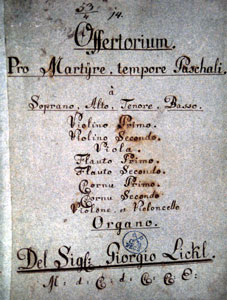 53/4 14.
Offertorium.
Pro Martÿre, tempore Paschali.
à
Soprano, Alto, Tenore, Basso.
Violino Primo.
Violino Secondo.
Viola.
Flauto Primo.
Flauto Secondo.
Cornu Primo.
Cornu Secondo.
Violone, e Violoncello
Organo.
Del Sigl: Giorgio Lickl.
M: d: C: d: C: C: E: